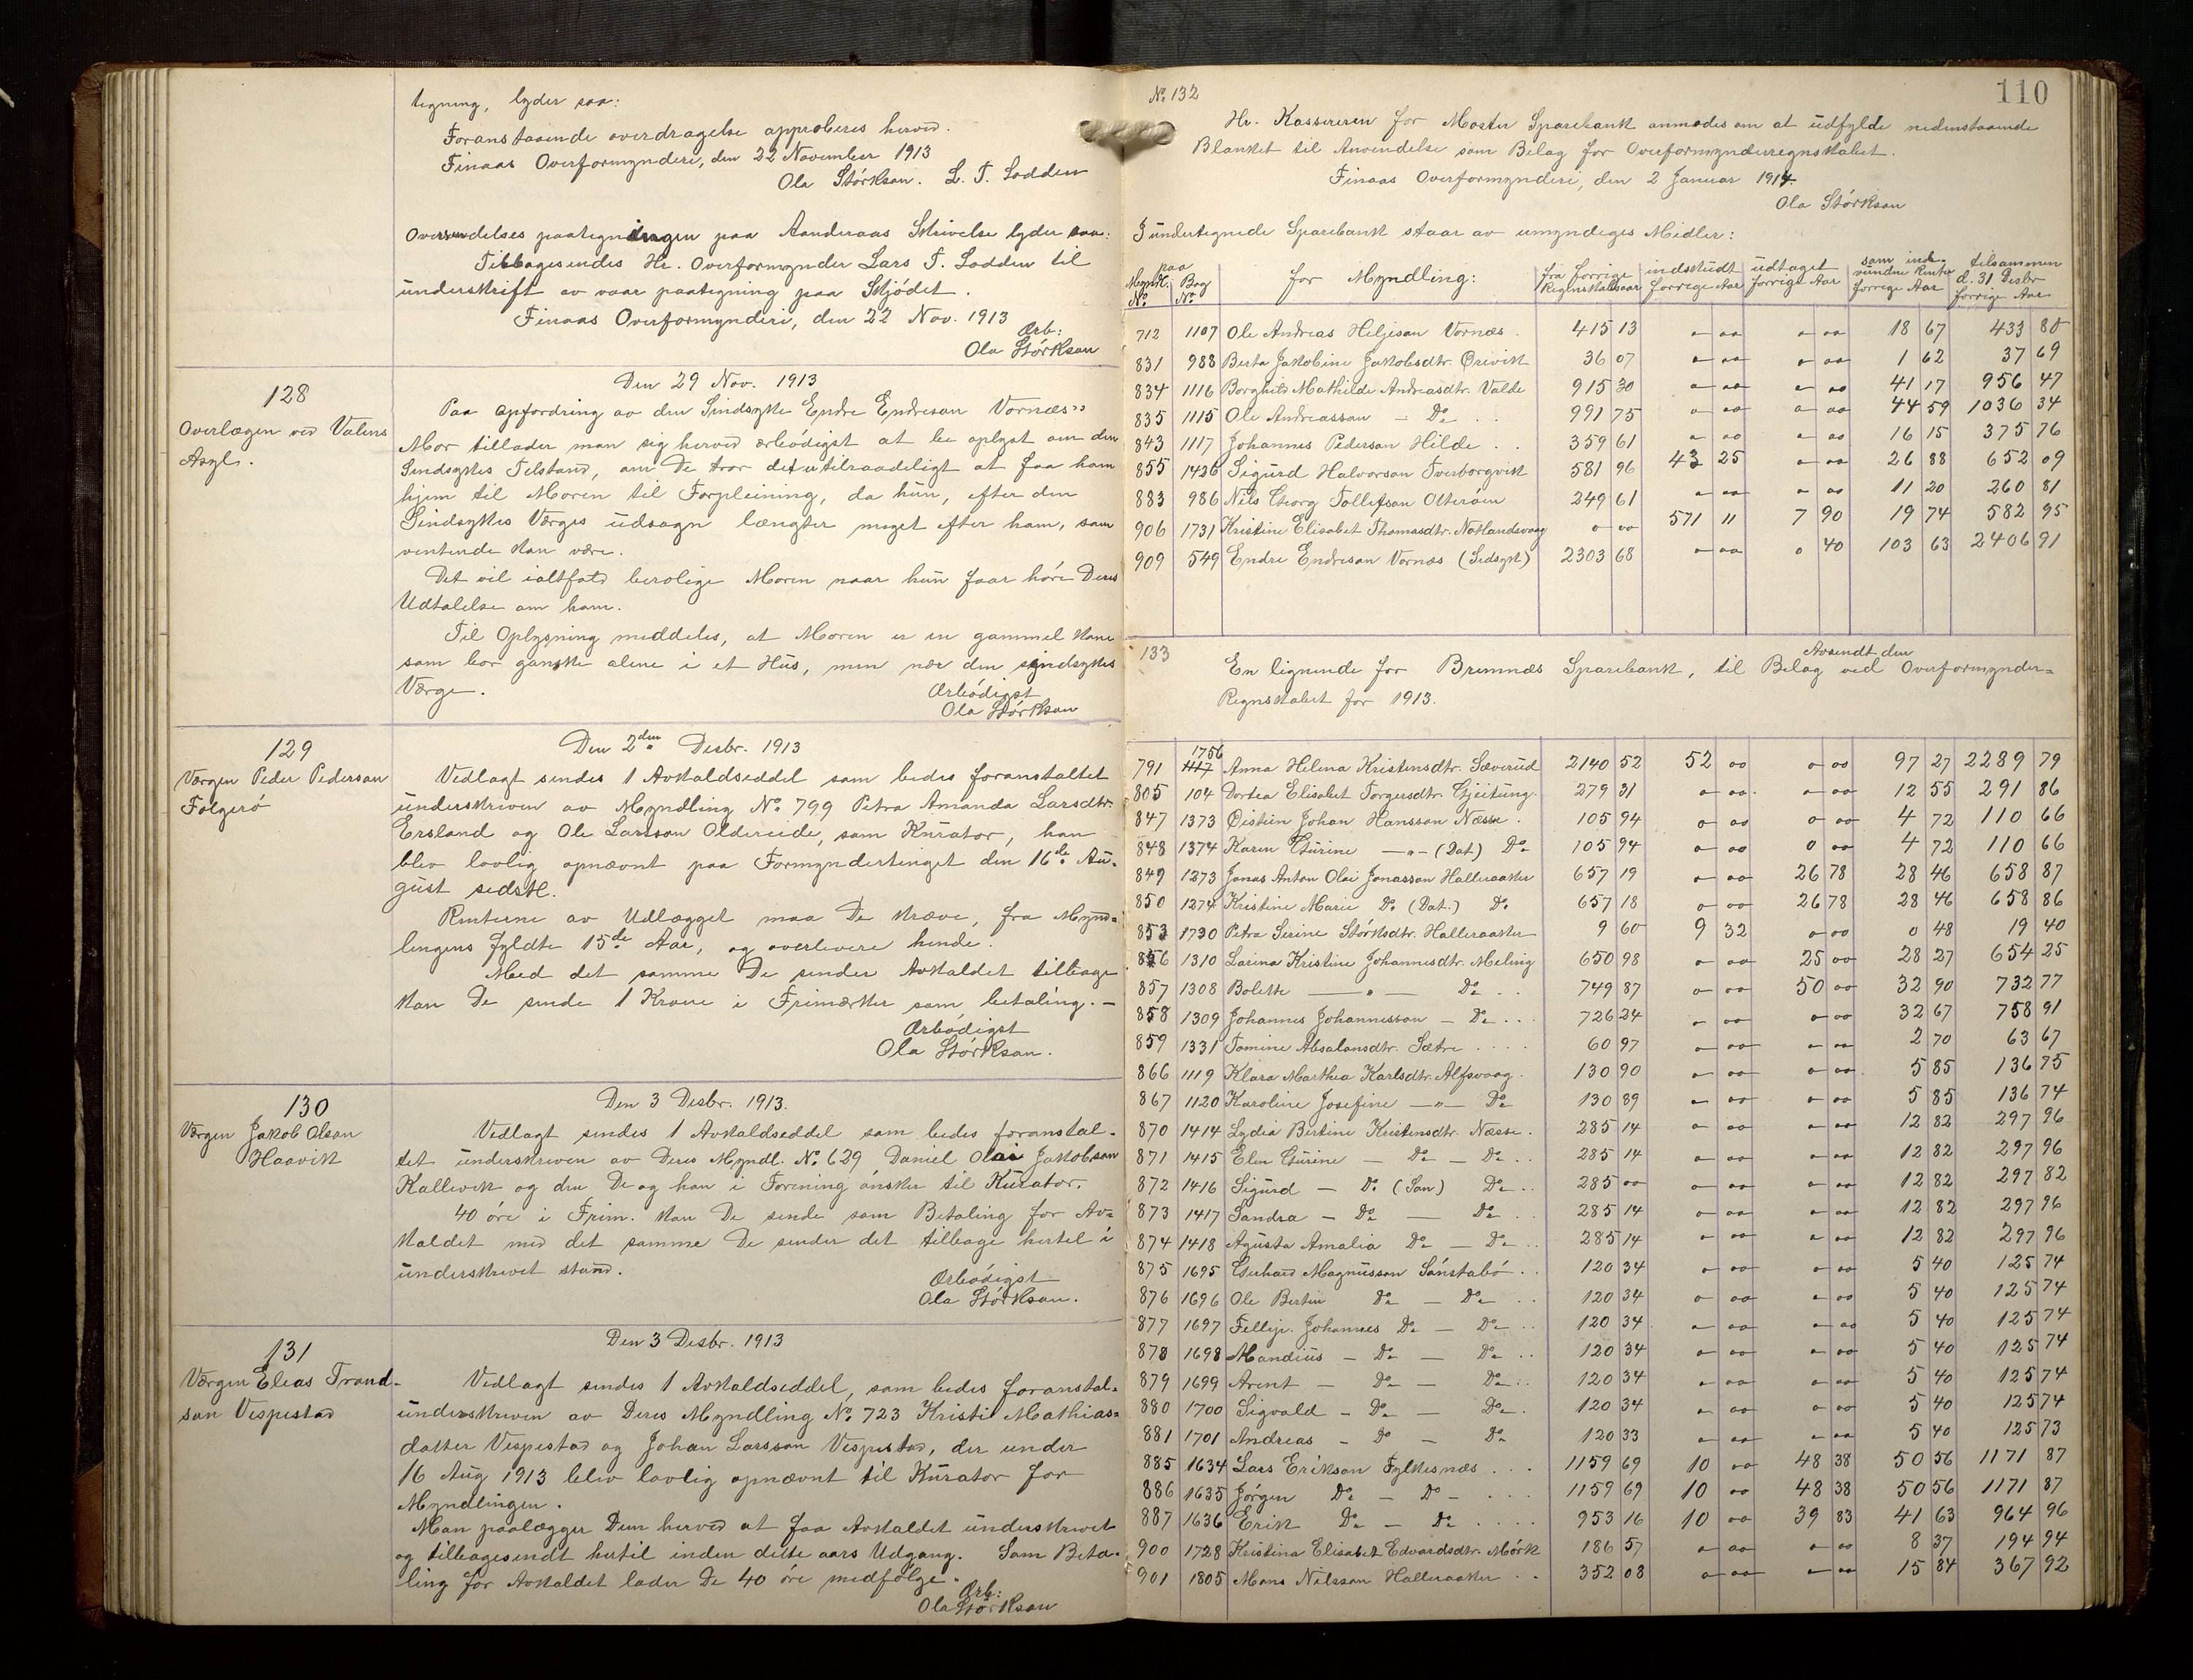 tegning, lyder saa:
Foranstaaende overdragelse approberes herved.
Finaas Overformynderi, den 22 November 1913
Ola Størkson. L. T. Lodden
Oversendelses paategningen paa Aanderaas Skrivelse lyder saa:
Tilbagesendes Hr. Overformynder Lars T. Lodden til
underskrift av vaar paategning paa Skjødet.
Finaas Overformynderi, den 22 Nov. 1913
Ærb:
Ola Størkson
128
Overlægen ved Valens
Asyl.
Den 29 Nov. 1913
Paa opfordring av den Sindsyke Endre Endreson Vornæs's
Mor tillader man sig herved ærbødigst at be oplyst om den
Sindsykes Tilstand, om De tror det er tilraadeligt at faa ham
hjem til Moren til Forpleining, da hun, efter den
Sindsykes Værges udsagn længter meget efter ham, som
ventende kan være.
Det vil ialtfald berolige Moren naar hun faar høre Deres
Udtalelse om ham.
Til Oplysning meddeles, at Moren er en gammel Kone
som bor ganske alene i et Hus, men nær den sindsykes
Værge.
Ærbødigst
Ola Størkson
129
Værgen Peder Pederson
Folgerø
Den 2den Desbr. 1913
Vedlagt sendes 1 Avkaldseddel som bedes foranstaltet
underskreven av Myndling No. 799 Petra Amanda Larsdtr.
Ersland og Ole Larsson Oldereide, som Kurator, han
blev lovlig opnævnt paa Formyndertinget den 16de Au-
gust sidstl.
Renterne av Udlægget maa De kræve, fra Mynd-
lingens fyldte 15de Aar, og overlevere hende.
Med det samme De sender Avkaldet tilbage
kan De sende 1 Krone i Frimærker som betaling. —
Ærbødigst
Ola Størkson.
130
Værgen Jakob Olson
Haavik
Den 3 Desbr. 1913.
Vedlagt sendes 1 Avkaldseddel som bedes foranstal-
tet underskreven av Deres Myndl. No. 629 Daniel Olai Jakobson
Kallevik og den De og han i Forening ønsker til Kurator.
40 øre i Frim. kan De sende som Betaling for Av-
kaldet med det samme De sender det tilbage hertil i
underskrevet stand.
Ærbødigst
Ola Størkson.
131
Værgen Elias Trond-
son Vespestad
Den 3 Desbr. 1913
Vedlagt sendes 1 Avkaldseddel, som bedes foranstal-
underskreven av Deres Myndling No. 723 Kristi Mathias-
datter Vespestad og Johan Larsson Vespestad, der under
16 Aug 1913 blev lovlig opnævnt til Kurator for
Myndlingen.
Man paalægger Dem herved at faa Avkaldet underskrevet
og tilbagesendt hertil inden dette aars Udgang. Som Beta-
ling for Avkaldet lader De 40 øre medfølge.
Ærb:
Ola Størkson
No. 132
110
Hr. Kassereren for Moster Sparebank anmodes om at udfylde nedenstaaende
Blanket til Anvendelse som Bilag for Overformynderregnskabet.
Finaas Overformynderi, den 2 Januar 1914.
Ola Størkson
I undertegnede Sparebank staar av umyndiges Midler:
Myndl. No. paa Bog No. for Myndling: fra forrige Regnskabsaar indskudt forrige Aar udtaget forrige Aar som ind-vundne Renter forrige Aar tilsammen d. 31 Desbr forrige Aar
712 1107 Ole Andreas Heljeson Vornæs. 415 13 0 00 0 00 18 67 433 80
831 988 Berta Jakobine Jakobsdtr. Ørevik 36 07 0 00 0 00 1 62 37 69
834 1116 Borghild Mathilde Andreasdtr. Valde 915 30 0 00 0 00 41 17 956 47
835 1115 Ole Andreasson — Do. . . 991 75 0 00 0 00 44 59 1036 34
843 1117 Johannes Pederson Hilde . . 359 61 0 00 0 00 16 15 375 76
855 1426 Sigurd Halvorson Tverborgvik 581 96 43 25 0 00 26 88 652 09
883 986 Nils Georg Tollefson Otterøen 249 61 0 00 0 00 11 20 260 81
906 1731 Kristine Elisabet Thomasdtr. Notlandsvaag 0 00 571 11 7 90 19 74 582 95
909 549 Endre Endreson Vornæs (Sidsyk) 2303 68 0 00 0 40 103 63 2406 91
133
Avsendt den
En lignende for Bremnæs Sparebank, til Bilag ved Overformynder-
Regnskabet for 1913.
1756
791 1117 Anna Helena Kristensdtr. Sæverud 2140 52 52 00 0 00 97 27 2289 79
805 104 Dortea Elisabet Torgersdtr. Gjeitung. 279 31 0 00 0 00 12 55 291 86
847 1373 Øistein Johan Hansson Næsse. 105 94 0 00 0 00 4 72 110 66
848 1374 Karen Gurine —"— (Dat) Do. 105 94 0 00 0 00 4 72 110 66
849 1273 Jonas Anton Olai Jonasson Halleraaker 657 19 0 00 26 78 28 46 658 87
850 1274 Kristine Marie Do. (Dat.) Do. 657 18 0 00 26 78 28 46 658 86
853 1730 Petra Serine Størksdtr. Halleraaker 9 60 9 32 0 00 0 48 19 40
856 1310 Larina Kristine Johannesdtr. Meling 650 98 0 00 25 00 28 27 654 25
857 1308 Bolette — " — Do. . . 749 87 0 00 50 00 32 90 732 77
858 1309 Johannes Johannesson — Do. . . . 726 24 0 00 0 00 32 67 758 91
859 1331 Tomine Absalonsdtr. Sætre . . . . 60 97 0 00 0 00 2 70 63 67
866 1119 Klara Marthea Karlsdtr. Alfsvaag. 130 90 0 00 0 00 5 85 136 75
867 1120 Karoline Josefine —"— Do. 130 89 0 00 0 00 5 85 136 74
870 1414 Lydia Bertine Kristensdtr. Næsse. 285 14 0 00 0 00 12 82 297 96
871 1415 Elen Gurine — Do. — Do. . . 285 14 0 00 0 00 12 82 297 96
872 1416 Sigurd — Do. (Søn) Do. . . 285 00 0 00 0 00 12 82 297 82
873 1417 Sandra — Do. — Do. . . 285 14 0 00 0 00 12 82 297 96
874 1418 Agusta Amalia Do. — Do. . . 285 14 0 00 0 00 12 82 297 96
875 1695 Gerhard Magnusson Sønstabø . . 120 34 0 00 0 00 5 40 125 74
876 1696 Ole Bertin Do. — Do. . . 120 34 0 00 0 00 5 40 125 74
877 1697 Fellip. Johannes Do. — Do. . . 120 34 0 00 0 00 5 40 125 74
878 1698 Mandius — Do. — Do. . . 120 34 0 00 0 00 5 40 125 74
879 1699 Arent — Do. — Do. . . 120 34 0 00 0 00 5 40 125 74
880 1700 Sigvald — Do. — Do. . 120 34 0 00 0 00 5 40 125 74
881 1701 Andreas — Do — Do. 120 33 0 00 0 00 5 40 125 73
885 1634 Lars Erikson Fylkesnæs . . . 1159 69 10 00 48 38 50 56 1171 87
886 1635 Jørgen Do. — Do — . . . 1159 69 10 00 48 38 50 56 1171 87
887 1636 Erik Do. — Do. . . . . 953 16 10 00 39 83 41 63 964 96
900 1728 Kristina Elisabet Edvardsdtr. Mørk 186 57 0 00 0 00 8 37 194 94
901 1805 Mons Nilsson Halleraaker . . 352 08 0 00 0 00 15 84 367 92